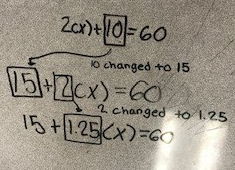 2(x)+10=60
10 changed to 15
15+2(x)=60
2 changed to 1.25
15+1.25(x)=60